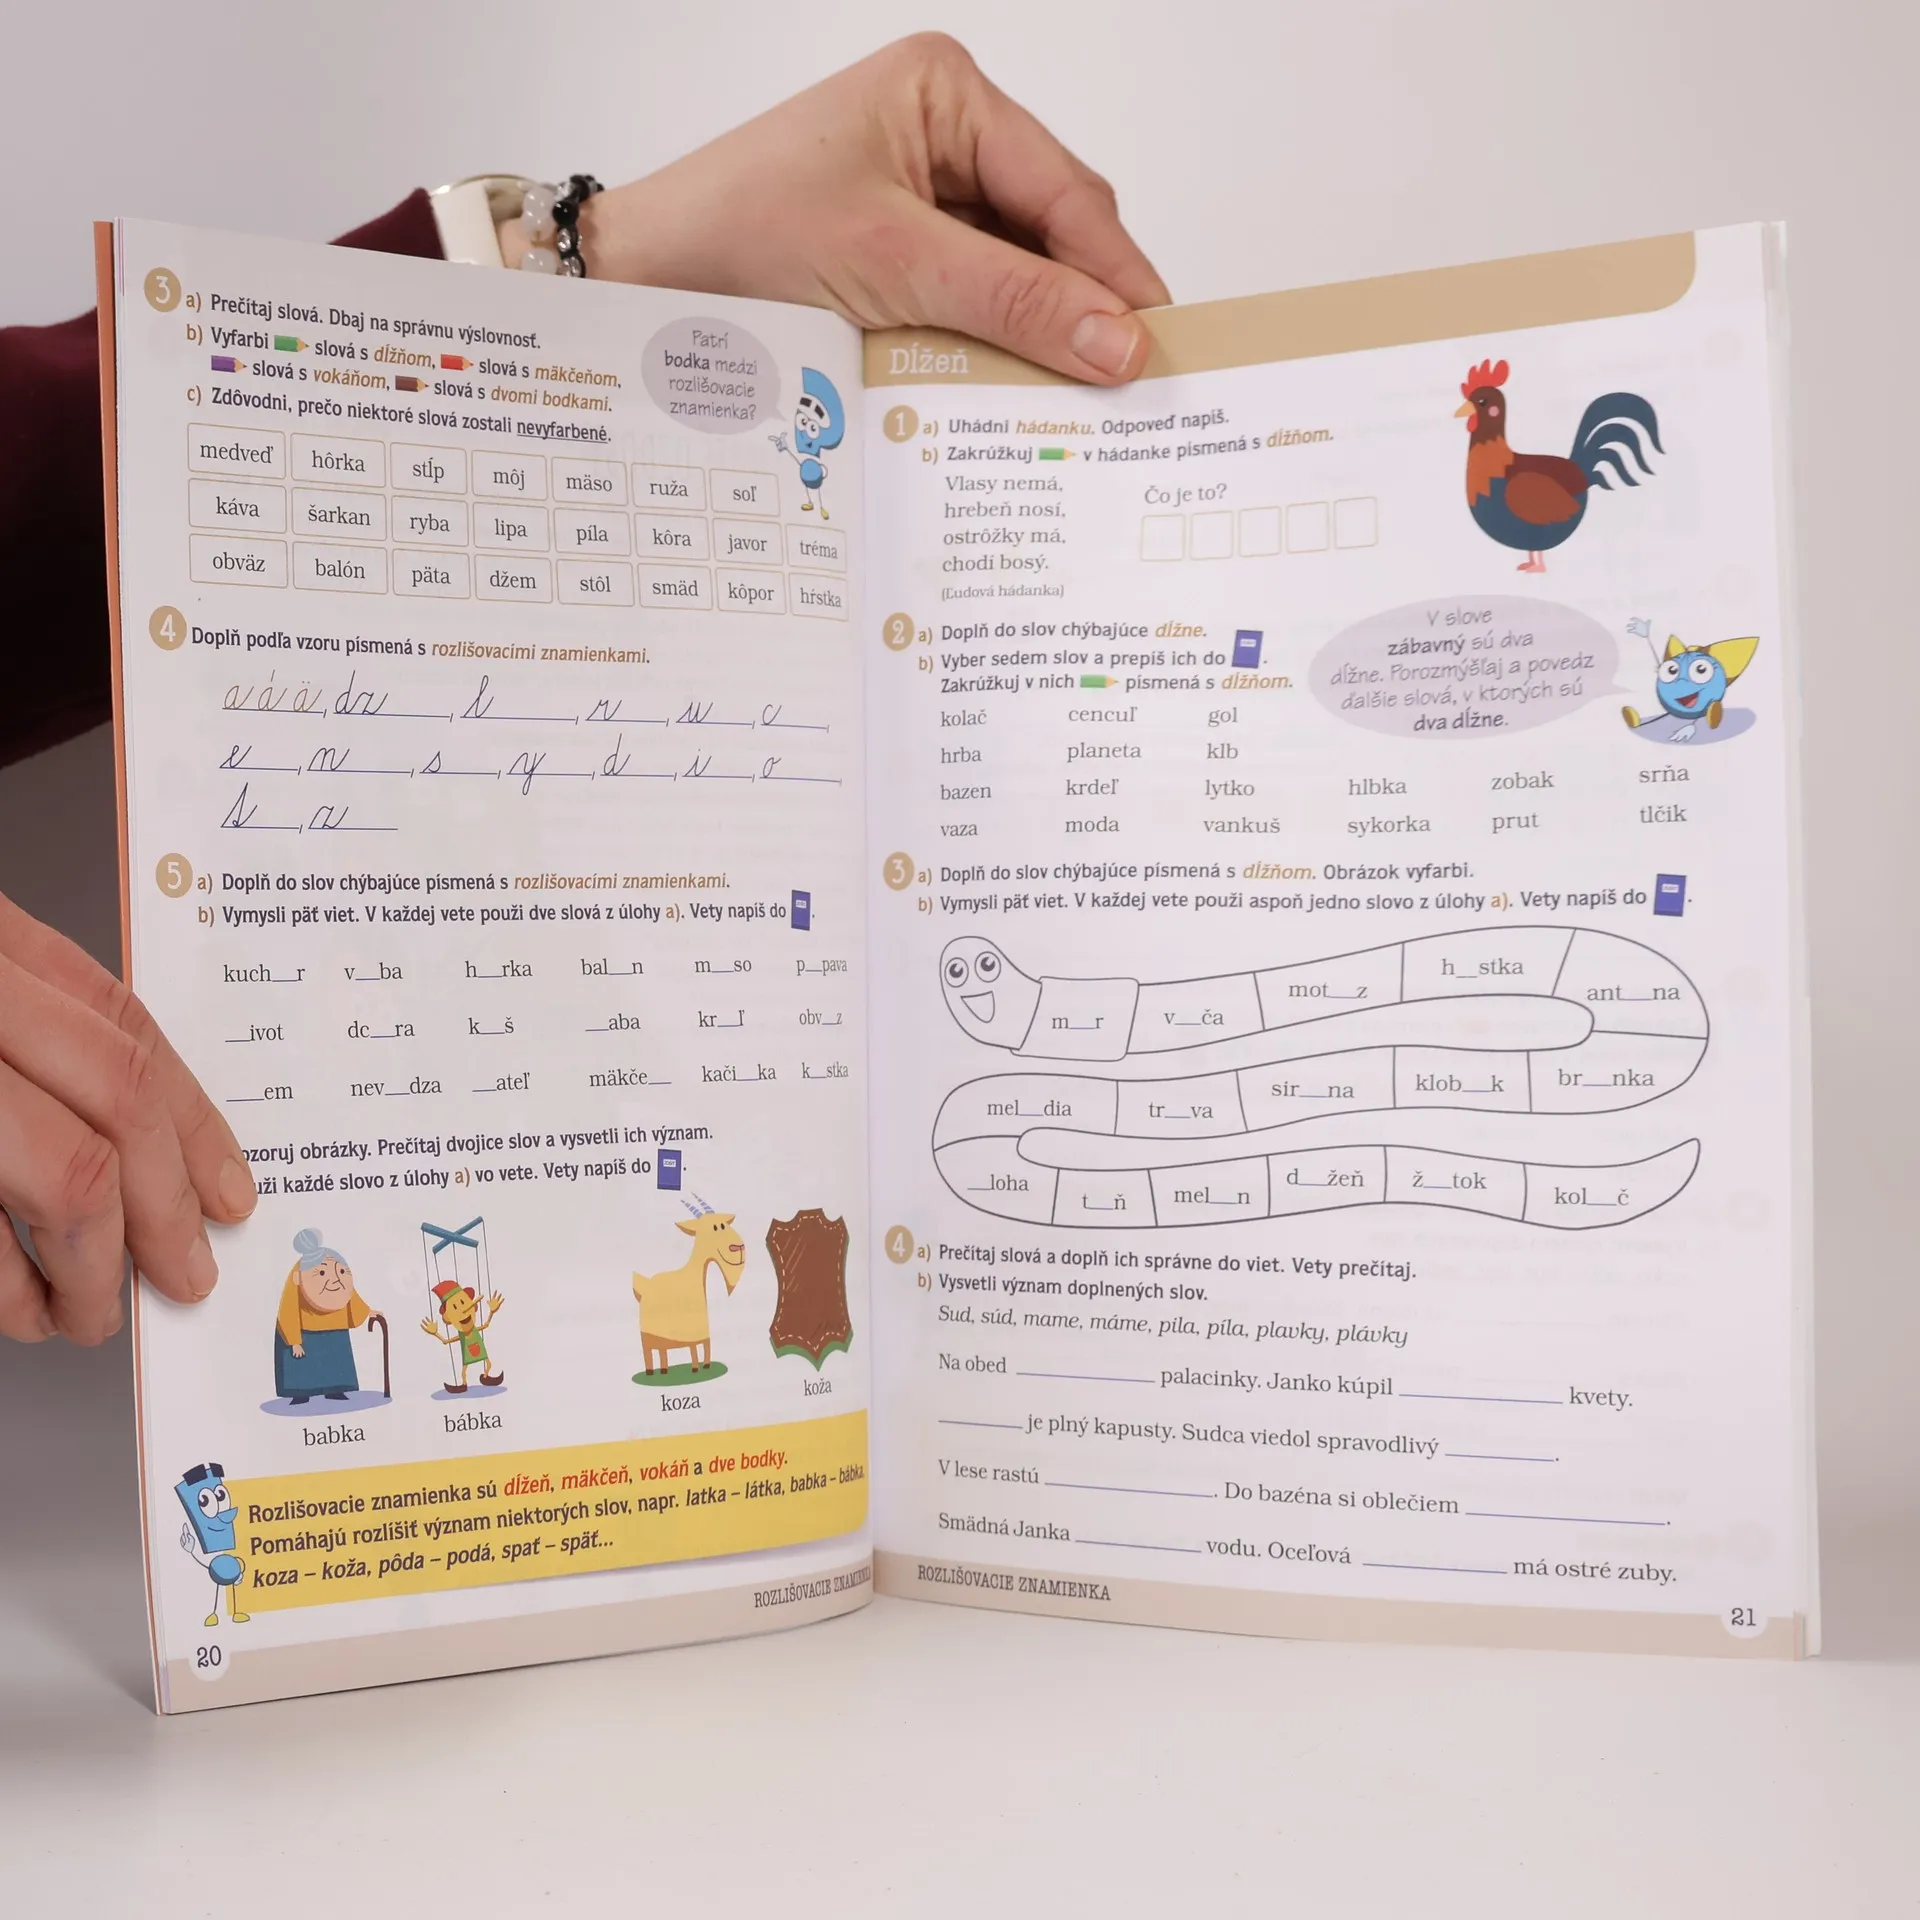 3 a) Prečítaj slová. Dbaj na správnu výslovnosť.
b) Vyfarbi slová s dĺžňom, slová s mäkčeňom,
slová s vokáňom, slová s dvomi bodkami.
c) Zdôvodni, prečo niektoré slová zostali nevyfarbené.
Patrí
bodka medzi
rozlišovacie
znamienka?
medveď hôrka stĺp môj mäso ruža soľ
káva šarkan ryba lipa píla kôra javor tréma
obväz balón päta džem stôl smäd kôpor hŕstka
4 Doplň podľa vzoru písmená s rozlišovacími znamienkami.
a á ä, dz ____, l ____, r ____, u ____, c ____,
e ____, n ____, s ____, y ____, d ____, i ____, o ____
t ____, z ____
5 a) Doplň do slov chýbajúce písmená s rozlišovacími znamienkami.
b) Vymysli päť viet. V každej vete použi dve slová z úlohy a). Vety napíš do .
kuch__r v__ba h__rka bal__n m__so p__pava
__ivot dc__ra k__š __aba kr__ľ obv__z
__em nev__dza __ateľ mäkče__ kači__ka k__stka
ozoruj obrázky. Prečítaj dvojice slov a vysvetli ich význam.
uži každé slovo z úlohy a) vo vete. Vety napíš do .
babka bábka koza koža
Rozlišovacie znamienka sú dĺžeň, mäkčeň, vokáň a dve bodky.
Pomáhajú rozlíšiť význam niektorých slov, napr. latka – látka, babka – bábka,
koza – koža, pôda – podá, spať – späť...
ROZLIŠOVACIE ZNAMIENKA
20
Dĺžeň
1 a) Uhádni hádanku. Odpoveď napíš.
b) Zakrúžkuj v hádanke písmená s dĺžňom.
Vlasy nemá,
hrebeň nosí,
ostrôžky má,
chodí bosý.
(Ľudová hádanka)
Čo je to?
2 a) Doplň do slov chýbajúce dĺžne.
b) Vyber sedem slov a prepíš ich do .
Zakrúžkuj v nich písmená s dĺžňom.
V slove
zábavný sú dva
dĺžne. Porozmýšľaj a povedz
ďalšie slová, v ktorých sú
dva dĺžne.
kolač cencuľ gol
hrba planeta klb
bazen krdeľ lytko hlbka zobak srňa
vaza moda vankuš sykorka prut tlčik
3 a) Doplň do slov chýbajúce písmená s dĺžňom. Obrázok vyfarbi.
b) Vymysli päť viet. V každej vete použi aspoň jedno slovo z úlohy a). Vety napíš do .
m__r v__ča mot__z h__stka ant__na
mel__dia tr__va sir__na klob__k br__nka
__loha t__ň mel__n d__žeň ž__tok kol__č
4 a) Prečítaj slová a doplň ich správne do viet. Vety prečítaj.
b) Vysvetli význam doplnených slov.
Sud, súd, mame, máme, pila, píla, plavky, plávky
Na obed ____ palacinky. Janko kúpil ____ kvety.
____ je plný kapusty. Sudca viedol spravodlivý ____.
V lese rastú ____. Do bazéna si oblečiem ____.
Smädná Janka ____ vodu. Oceľová ____ má ostré zuby.
ROZLIŠOVACIE ZNAMIENKA
21